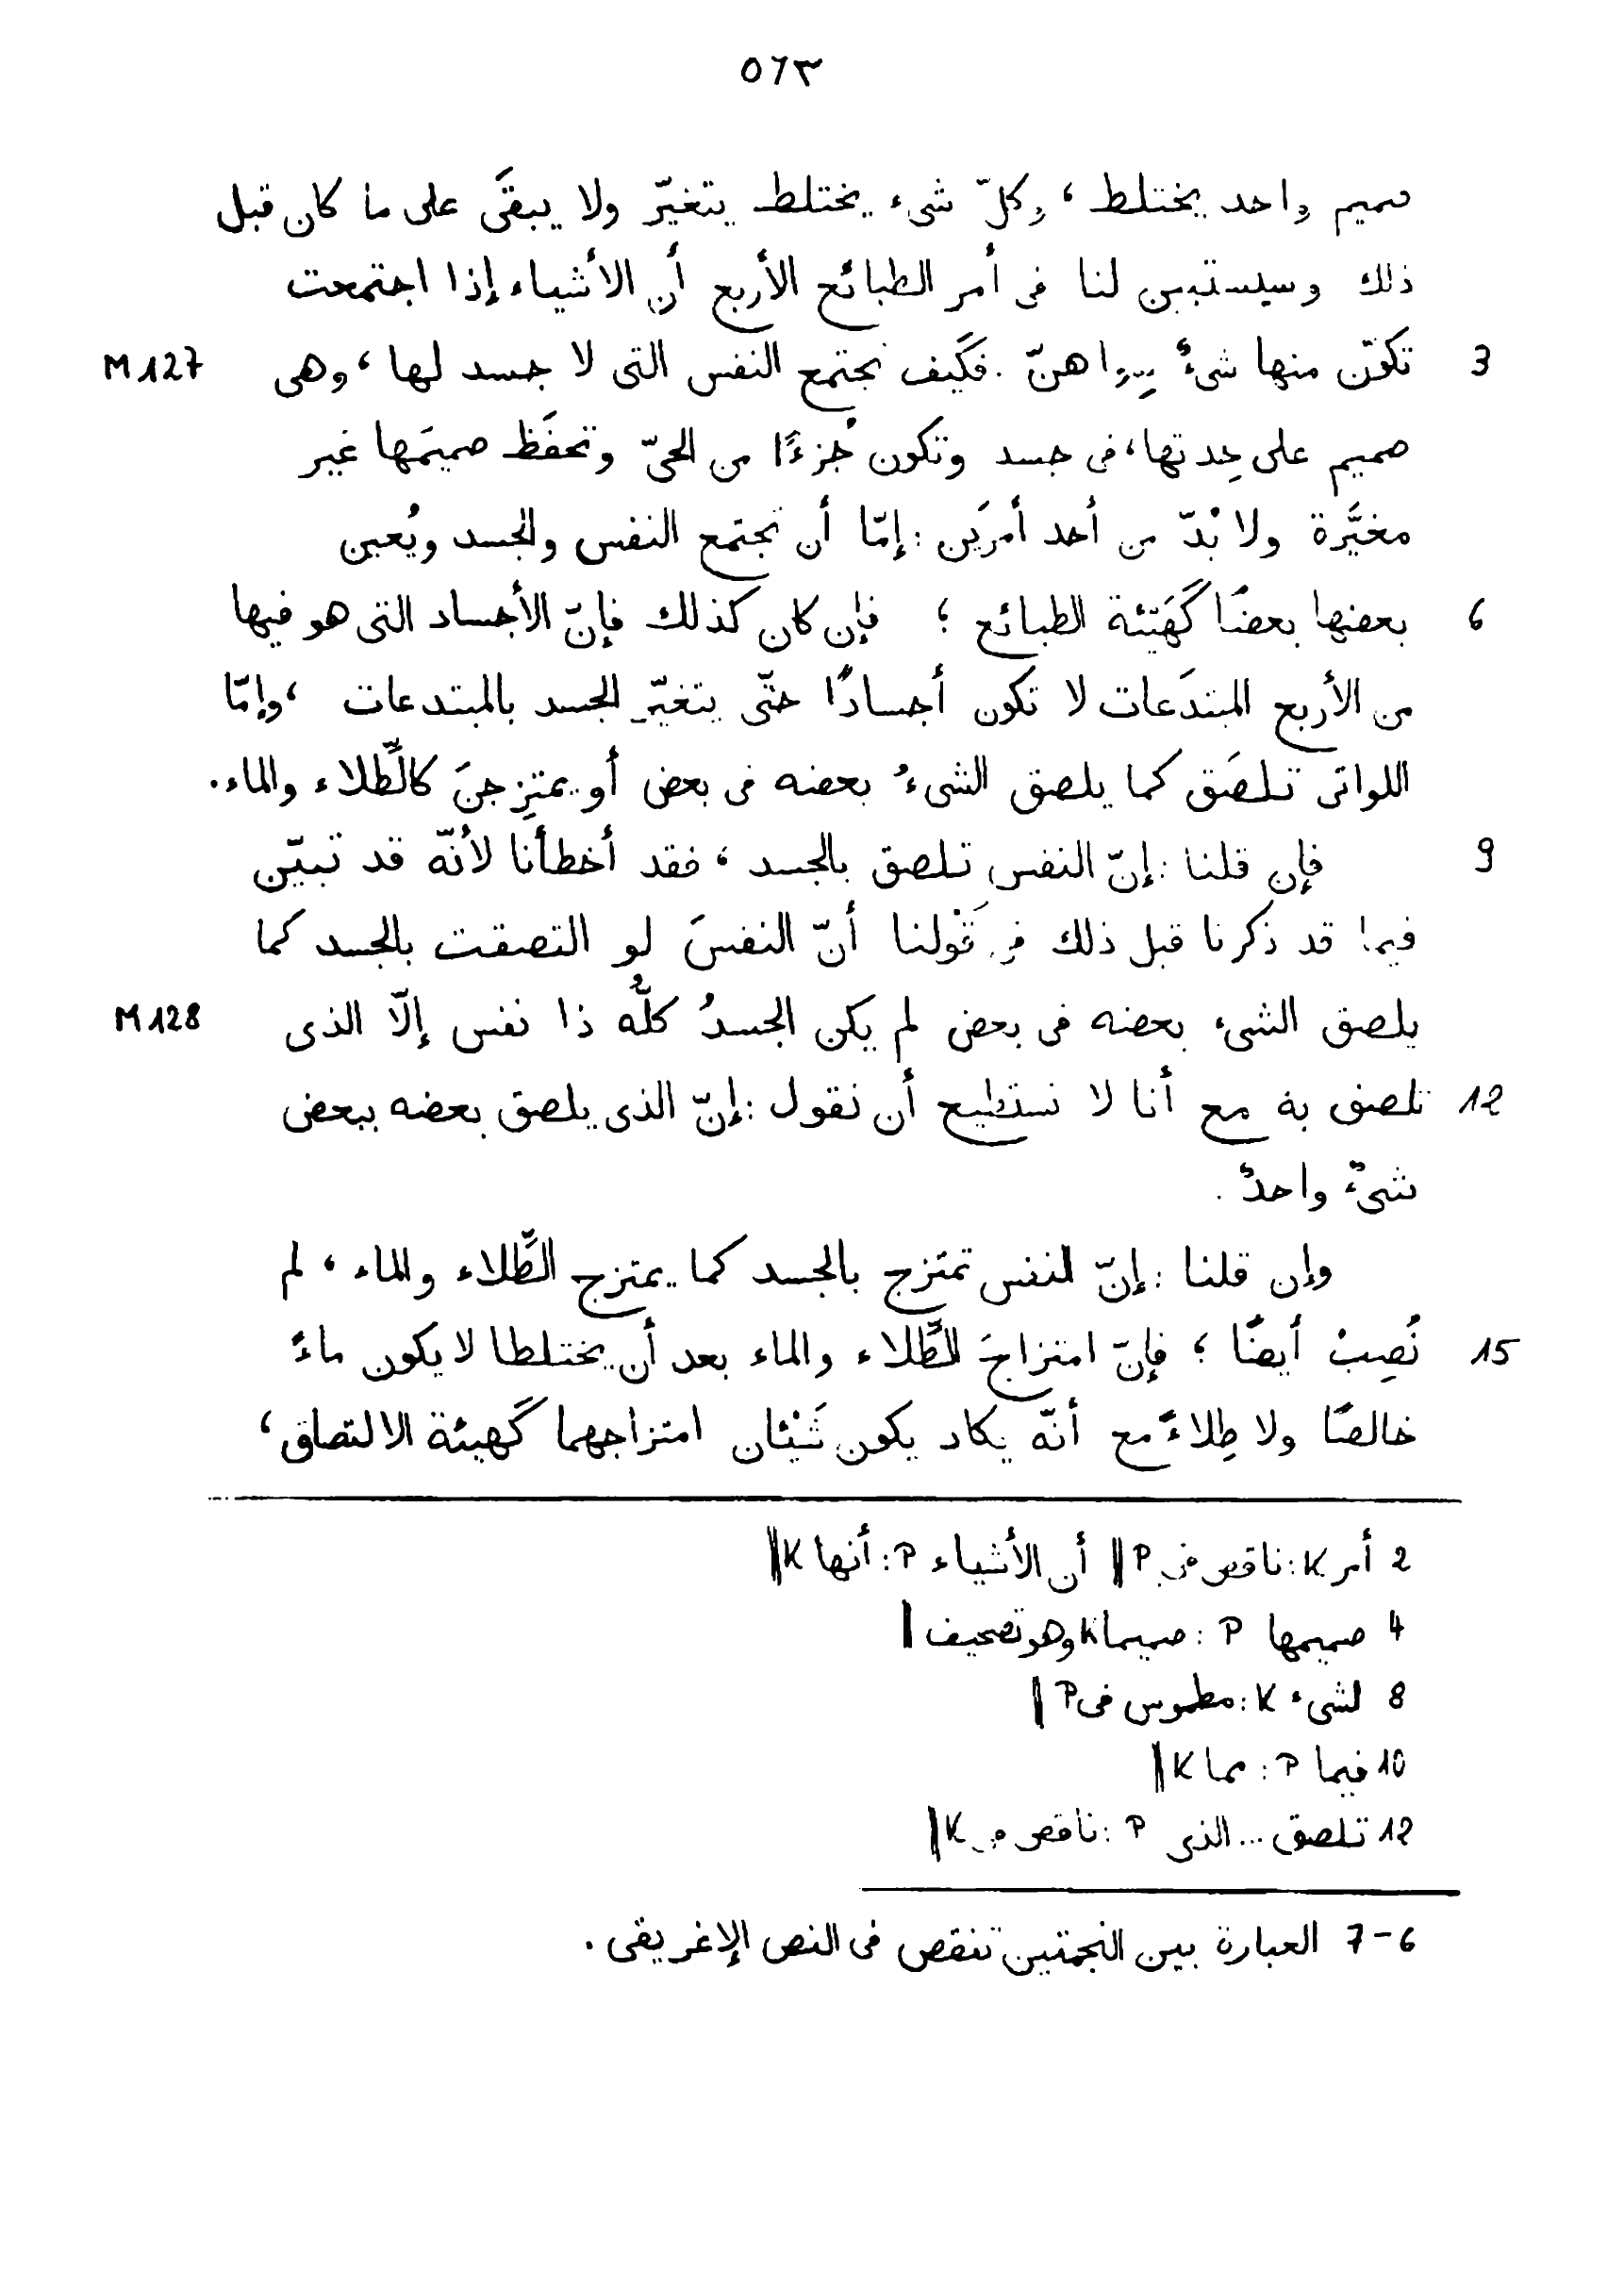 ٥٦٣
صميم واحد يختلط ، وكلّ شىء يختلط يتغيّر ولا يبقَى على ما كان قبل
ذلك وسيستبين لنا فى أمر الطبائع الأربع أن الأشياء إذا اجتمعت
3 تكوّن منها شىءٌ سواهنّ . فكَيف تجتمع النفس التى لا جسد لها ، وهى M 127
صميم على حِدتها ، فى جسد وتكون جُزءًا من الحىّ وتحفَظ صميمَها غير
مغيَّرة ولا بُدّ من أحد أمرَين : إمّا أن تجتمع النفس والجسد ويُعين
6 بعضها بعضًا كَهَيئة الطبائع ؛ فإن كان كذلك فإنّ الأجساد التى هو فيها
من الأربع المبتدَعات لا تكون أجسادًا حتّى يتغيّر الجسد بالمبتدعات ، وإمّا
اللواتى تلصَق كما يلصق الشىءُ بعضه فى بعض أو يمتزِجنَ كالطِّلاء والماء .
9 فإن قلنا : إنّ النفس تلصق بالجسد ، فقد أخطأنا لأنّه قد تبيّن
فيما قد ذكرنا قبل ذلك فى قَوْلنا أنّ النفسَ لو التصقت بالجسد كما
يلصق الشىء بعضه فى بعض لم يكن الجسدُ كلُّه ذا نفس إلّا الذى M 128
12 تلصق به مع أنا لا نستطيع أن نقول : إنّ الذى يلصق بعضه ببعض
شىءٌ واحدٌ .
وإن قلنا : إنّ النفس تمتزج بالجسد كما يمتزج الطِّلاء والماء ، لم
15 نُصِبْ أيضًا ؛ فإنّ امتزاجَ الطِّلاء والماء بعد أن يختلطا لا يكون ماءً
خالصًا ولا طِلاءً مع أنّه يكاد يكون شَيْئان امتزاجهما كَهيئة الالتصاق ،
2 أمر K : ناقص فى P || أن الأشياء P : أنها K ||
4 صميمها P : صميما K وهو تصحيف |
8 لشىء K : مطموس فى P |
10 فيما P : مما K ||
12 تلصق ... الذى P : ناقص فى K ||
6 - 7 العبارة بين النجمتين تنقص فى النص الإغريقى .